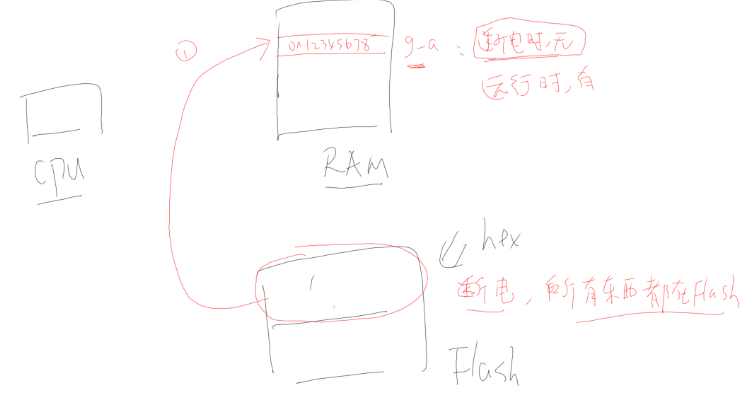 ①
0x12345678
g_a : 断电时,无
运行时,有
cpu
RAM
hex
断电,所有东西都在Flash
Flash